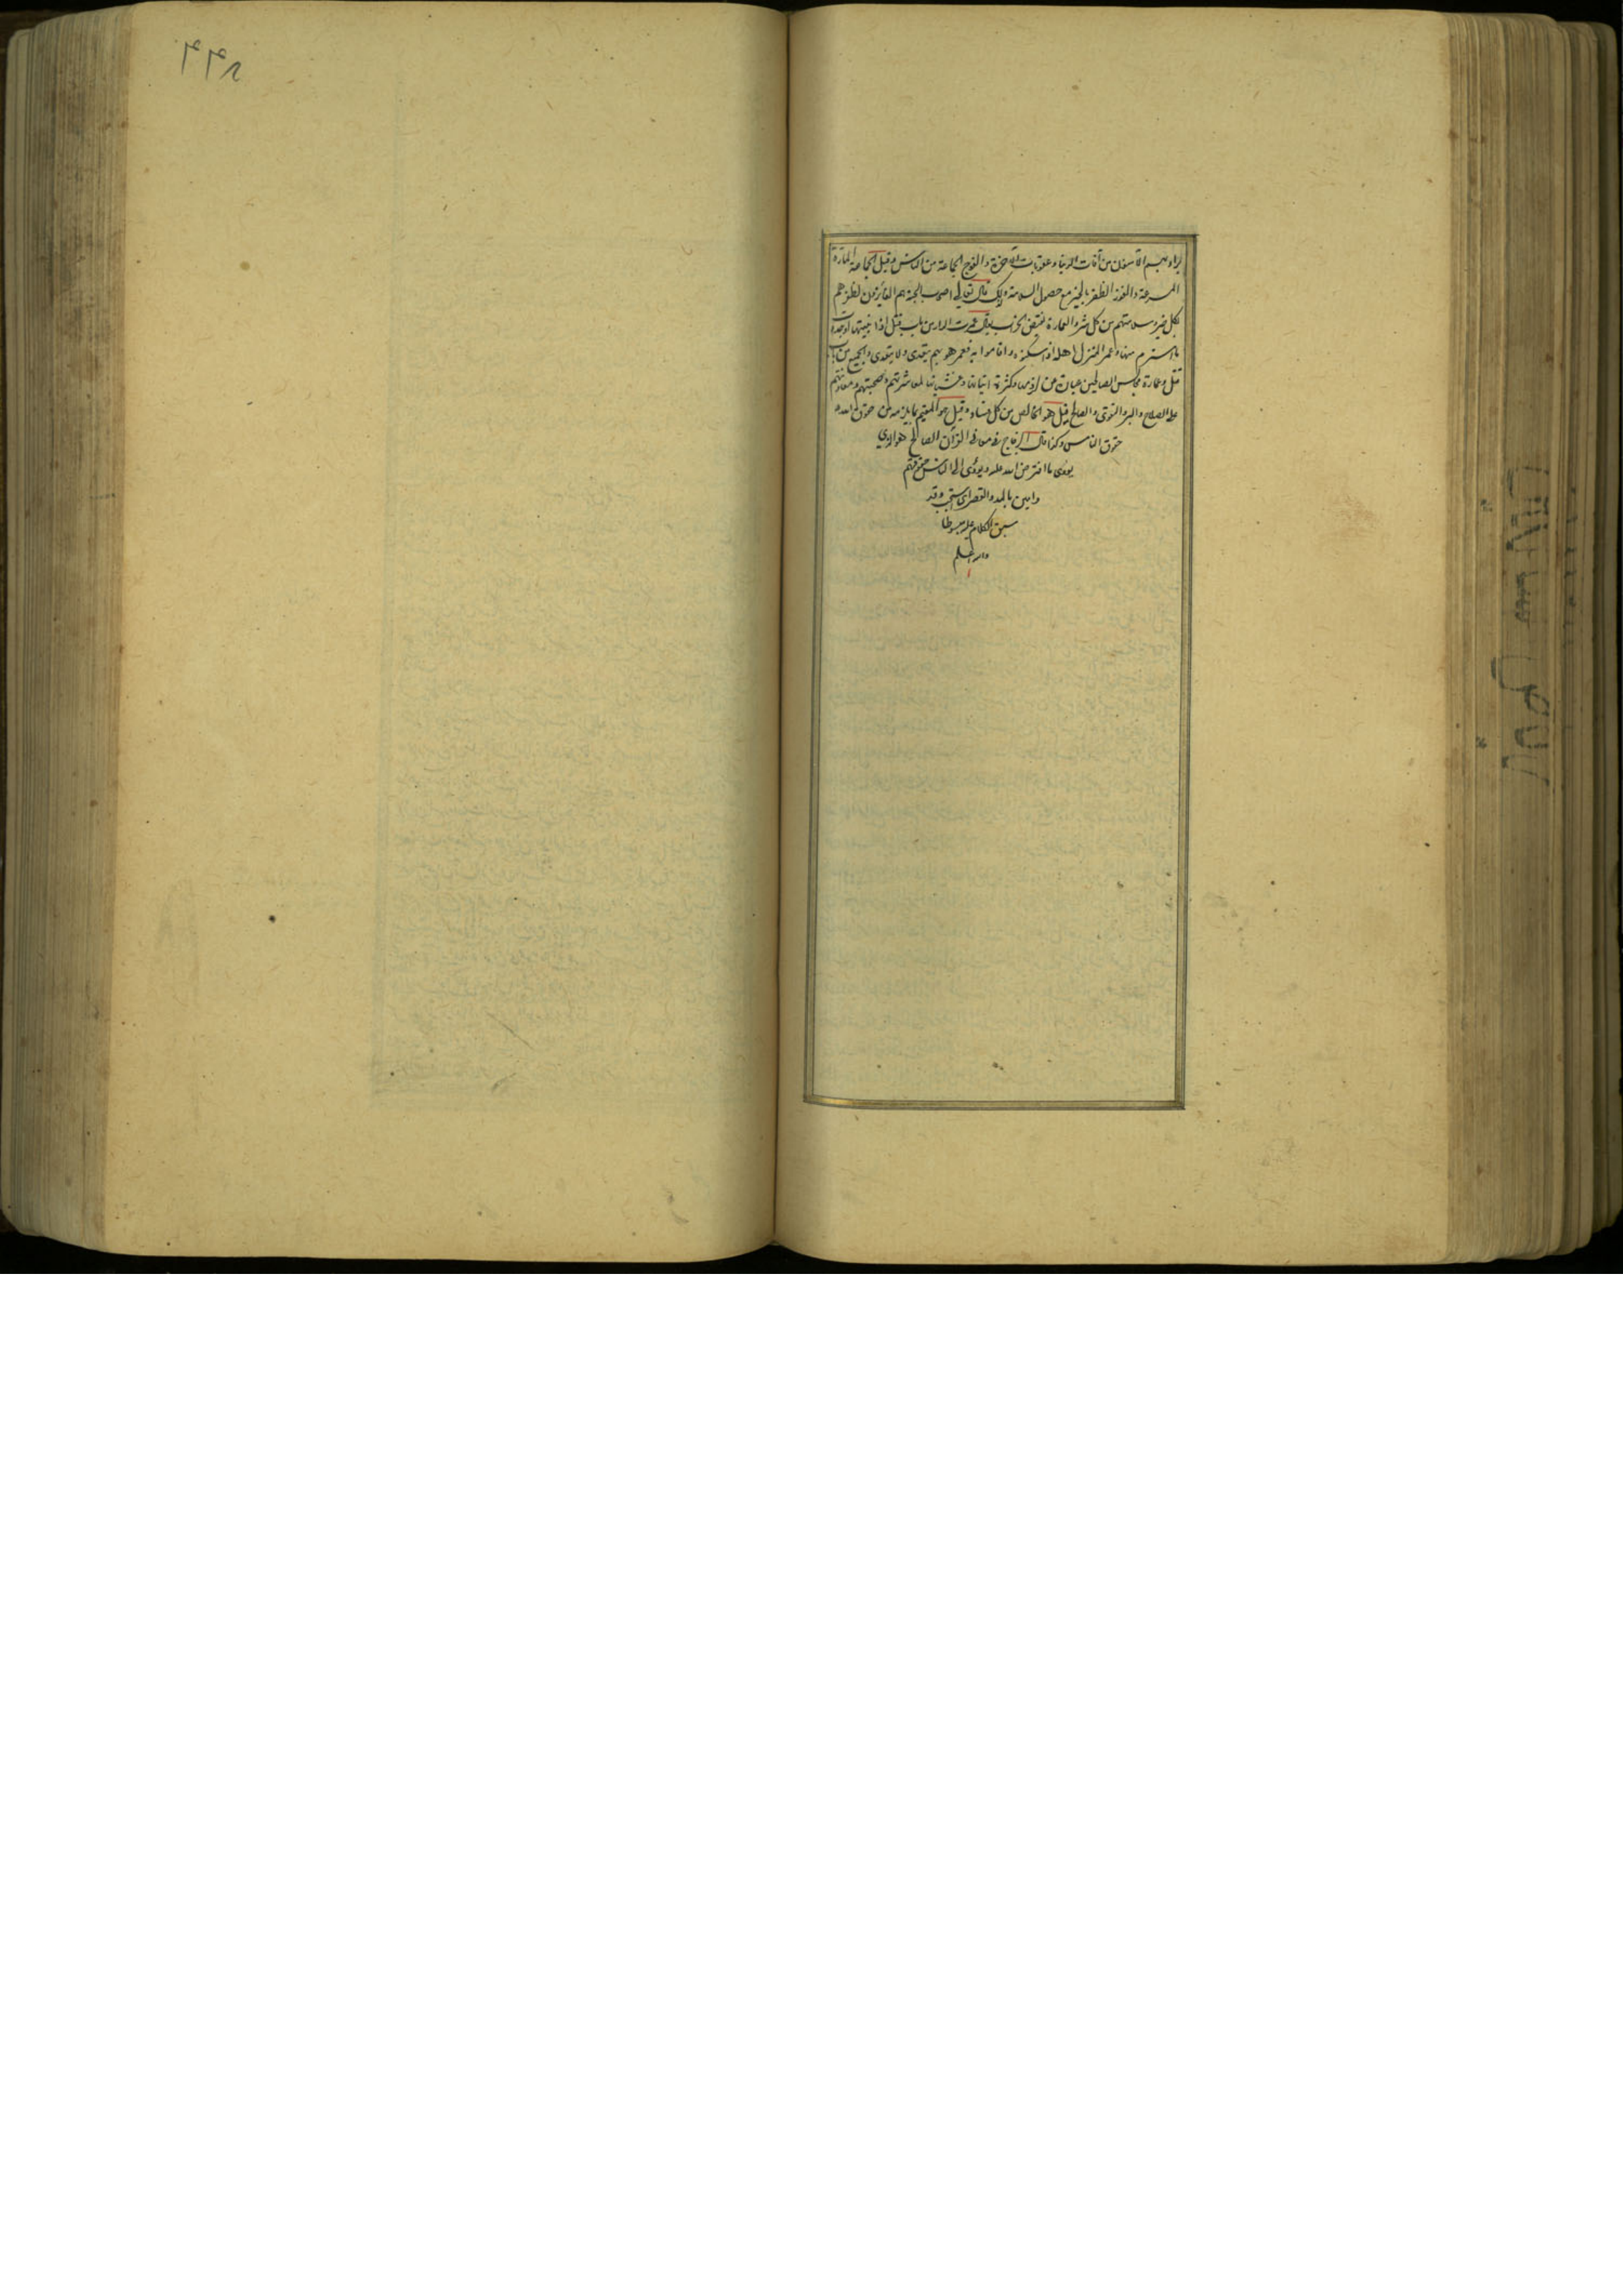 يراد بهم الآمنون من آفات الدنيا وعقوبات الآخرة والفوج الجماعة من الناس وقيل الجماعة المارة
المسرعة والفوز الظفر بالخير مع حصول السلامة ولذلك قال تعالى اصحاب الجنة هم الفائزون لظفرهم
بكل خير وسلامتهم من كل شر والعمارة نقيض الخراب يقال عمرت الدار من باب قتل اذا بنيتها
ما استرم منها وعمر المنزل اهله اذا سكنوه واقاموا به فعمر هو بهم يتعدى ولا يتعدى والجميع من باب
قتل وعمارة مجالس الصالحين عبارة عن لزومها وكثرة اتيانها وغشيانها لمعاشرتهم وصحبتهم ومعاونتهم
على الصلاح والبر والتقوى والصالح قيل هو الخالص من كل فساد وقيل هو المقيم بما يلزمه من حقوق الله و
حقوق الناس وكذا قال الزجاج في معاني القرآن الصالح هو الذي
يؤدي ما افترض الله عليه ويؤدي الى الناس حقوقهم
وامين بالمد والقصر اي استجب وقد
سبق الكلام عليه مبسوطا
والله اعلم